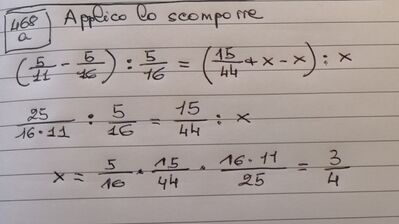 468
a
Applico lo scomporre
(5/11 - 5/16) : 5/16 = (15/44 + x - x) : x
25/16·11 : 5/16 = 15/44 : x
x = 5/16 · 15/44 · 16·11/25 = 3/4